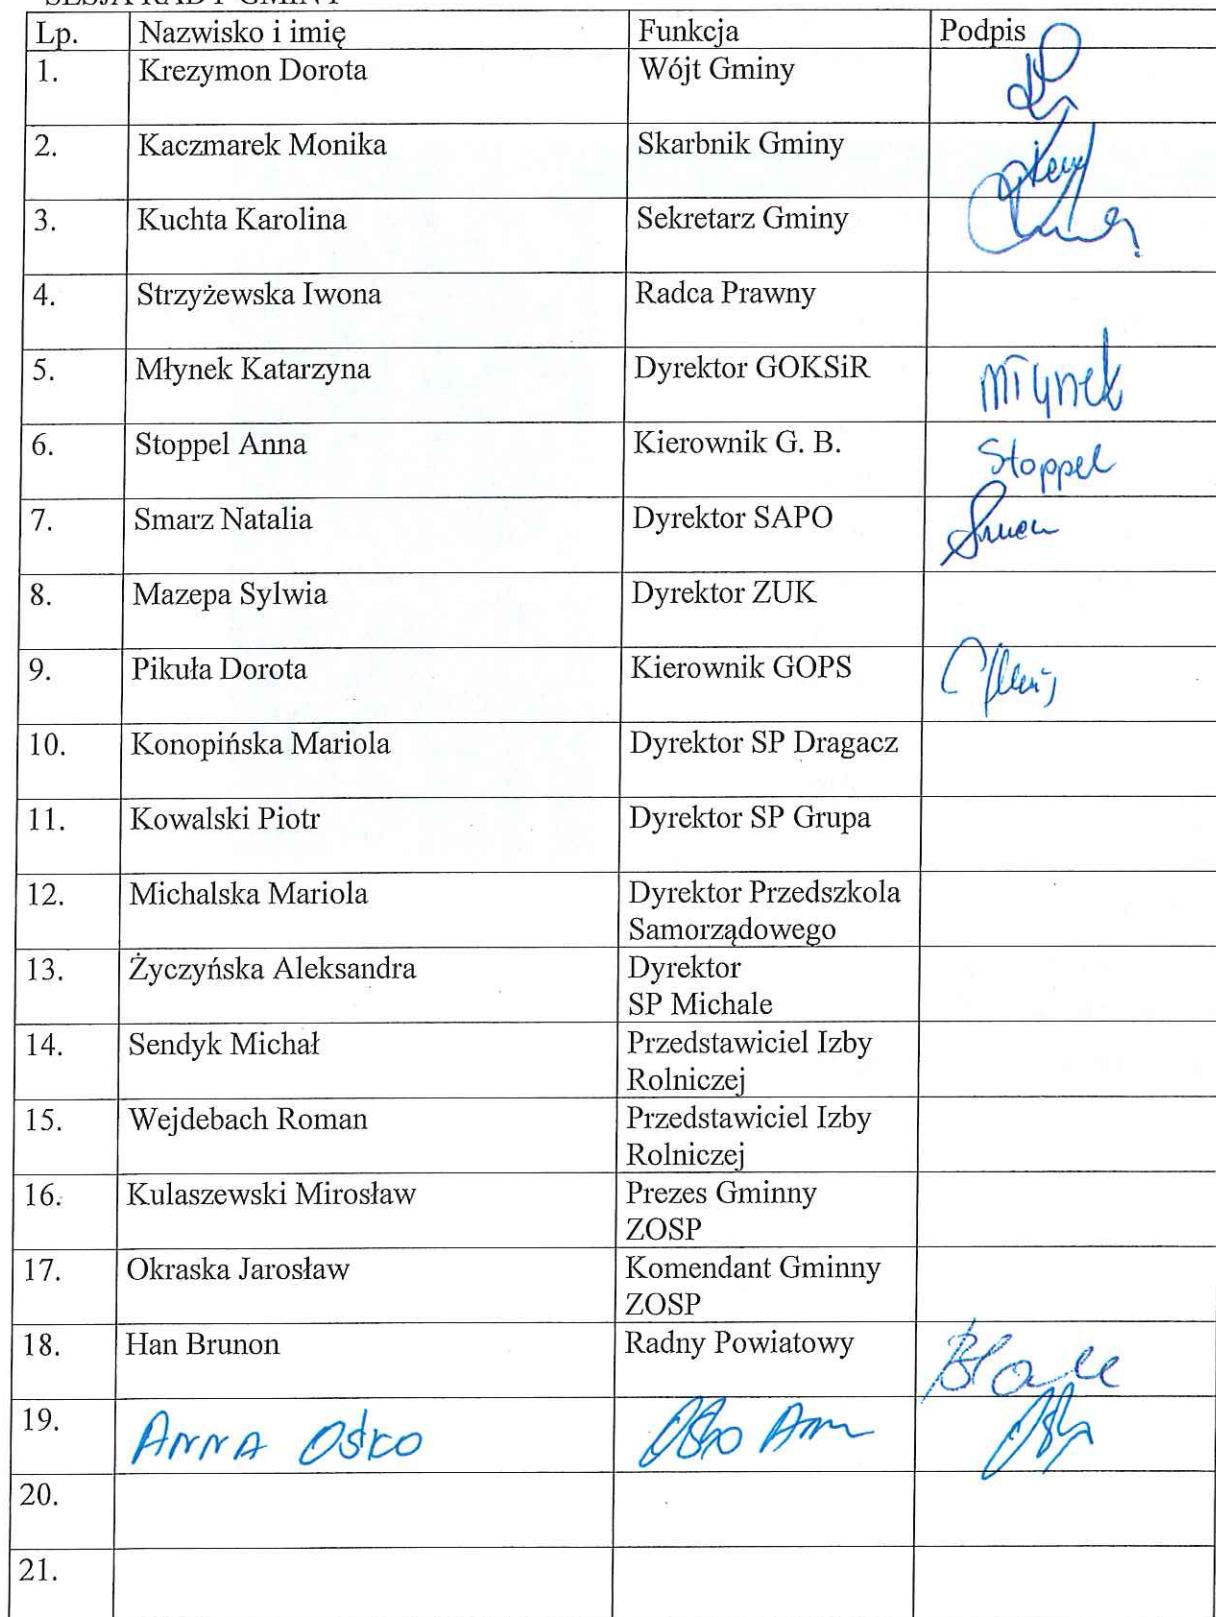 SESJA RADY GMINY
Lp. Nazwisko i imię Funkcja Podpis
1. Krezymon Dorota Wójt Gminy
2. Kaczmarek Monika Skarbnik Gminy
3. Kuchta Karolina Sekretarz Gminy
4. Strzyżewska Iwona Radca Prawny
5. Młynek Katarzyna Dyrektor GOKSiR Młynek
6. Stoppel Anna Kierownik G. B. Stoppel
7. Smarz Natalia Dyrektor SAPO
8. Mazepa Sylwia Dyrektor ZUK
9. Pikuła Dorota Kierownik GOPS
10. Konopińska Mariola Dyrektor SP Dragacz
11. Kowalski Piotr Dyrektor SP Grupa
12. Michalska Mariola Dyrektor Przedszkola
Samorządowego
13. Życzyńska Aleksandra Dyrektor
SP Michale
14. Sendyk Michał Przedstawiciel Izby
Rolniczej
15. Wejdebach Roman Przedstawiciel Izby
Rolniczej
16. Kulaszewski Mirosław Prezes Gminny
ZOSP
17. Okraska Jarosław Komendant Gminny
ZOSP
18. Han Brunon Radny Powiatowy
19. ANNA OŚKO
20.
21.